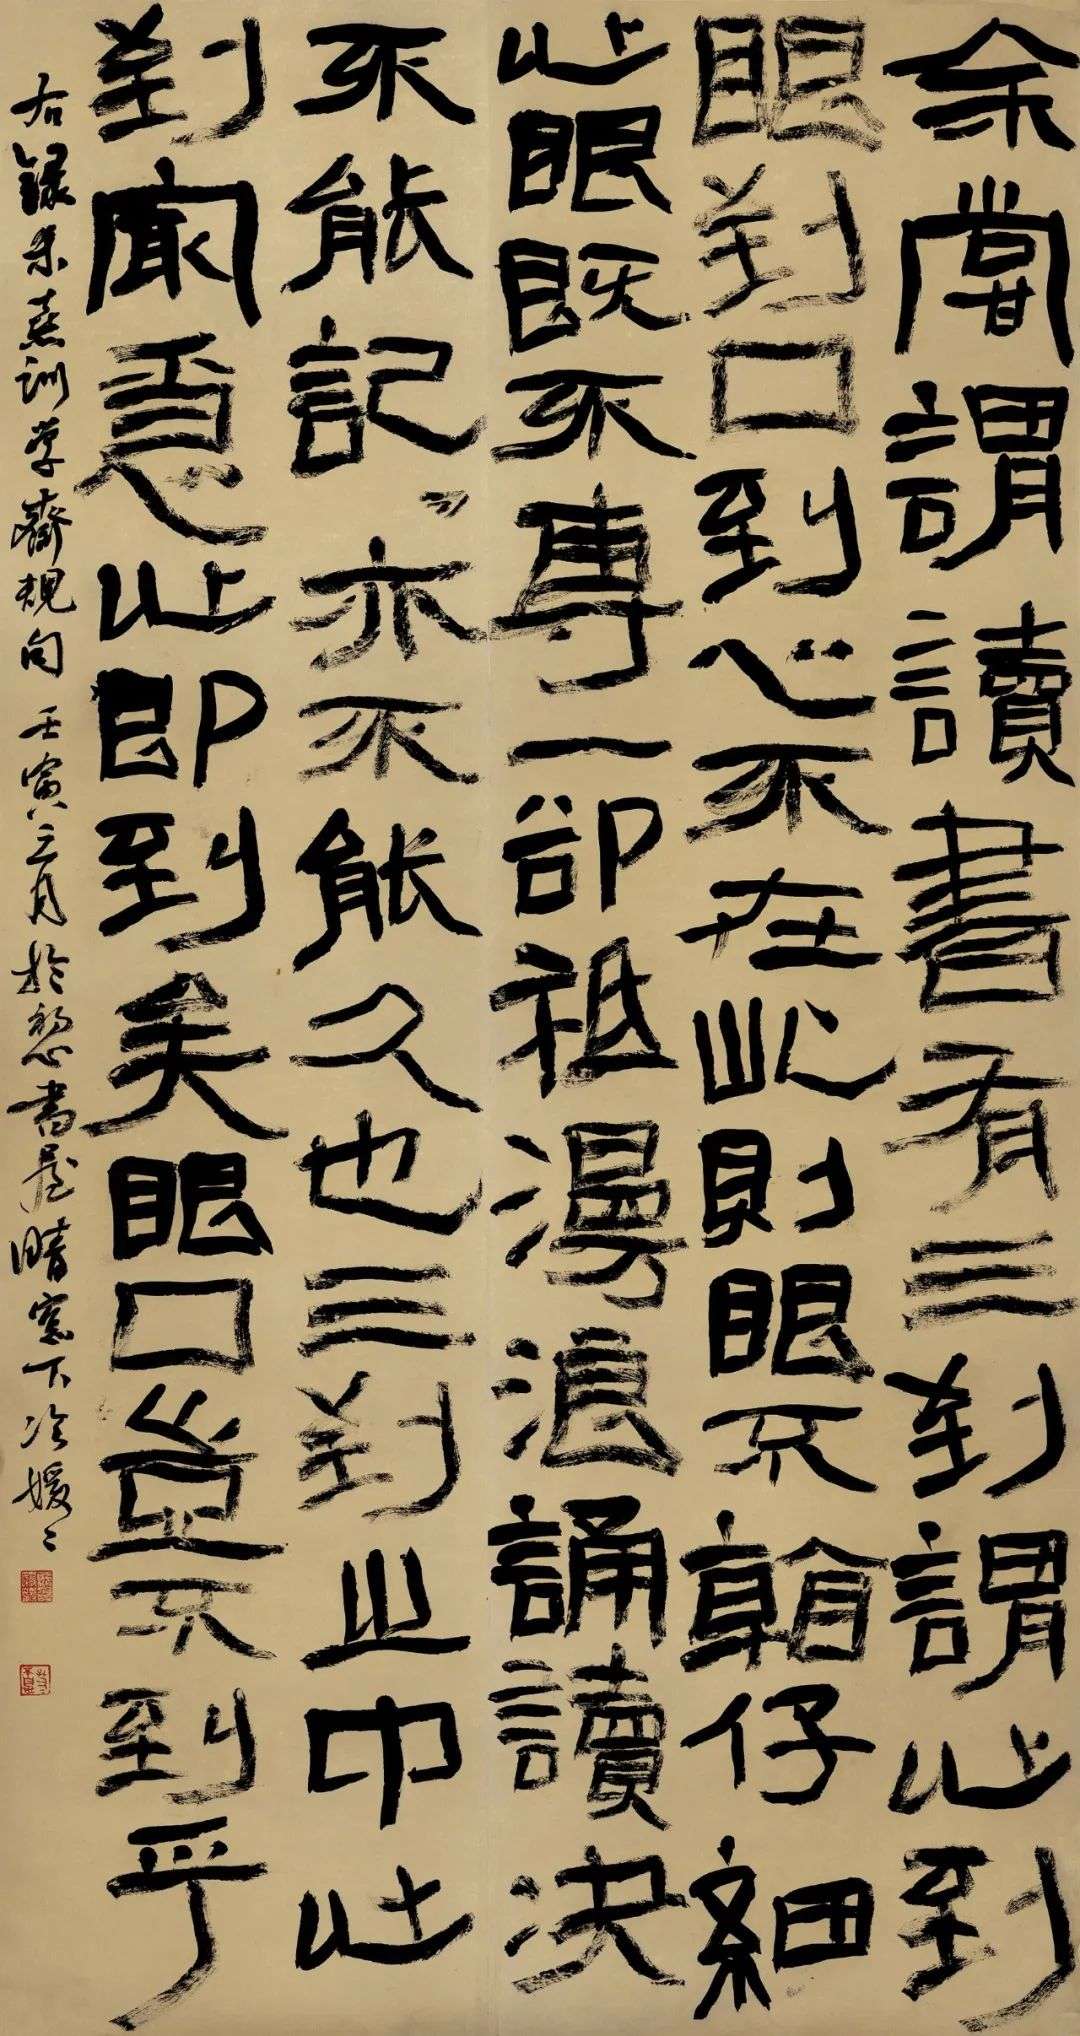 余嘗謂讀書有三到謂心到
眼到口到心不在此則眼不看仔細
心眼既不專一卻祇漫浪誦讀決
不能記〻亦不能久也三到之中心
到最急心即到矣眼口豈不到乎
右錄朱熹訓學齋規句 壬寅三月於書屋晴窗下冷媛〻